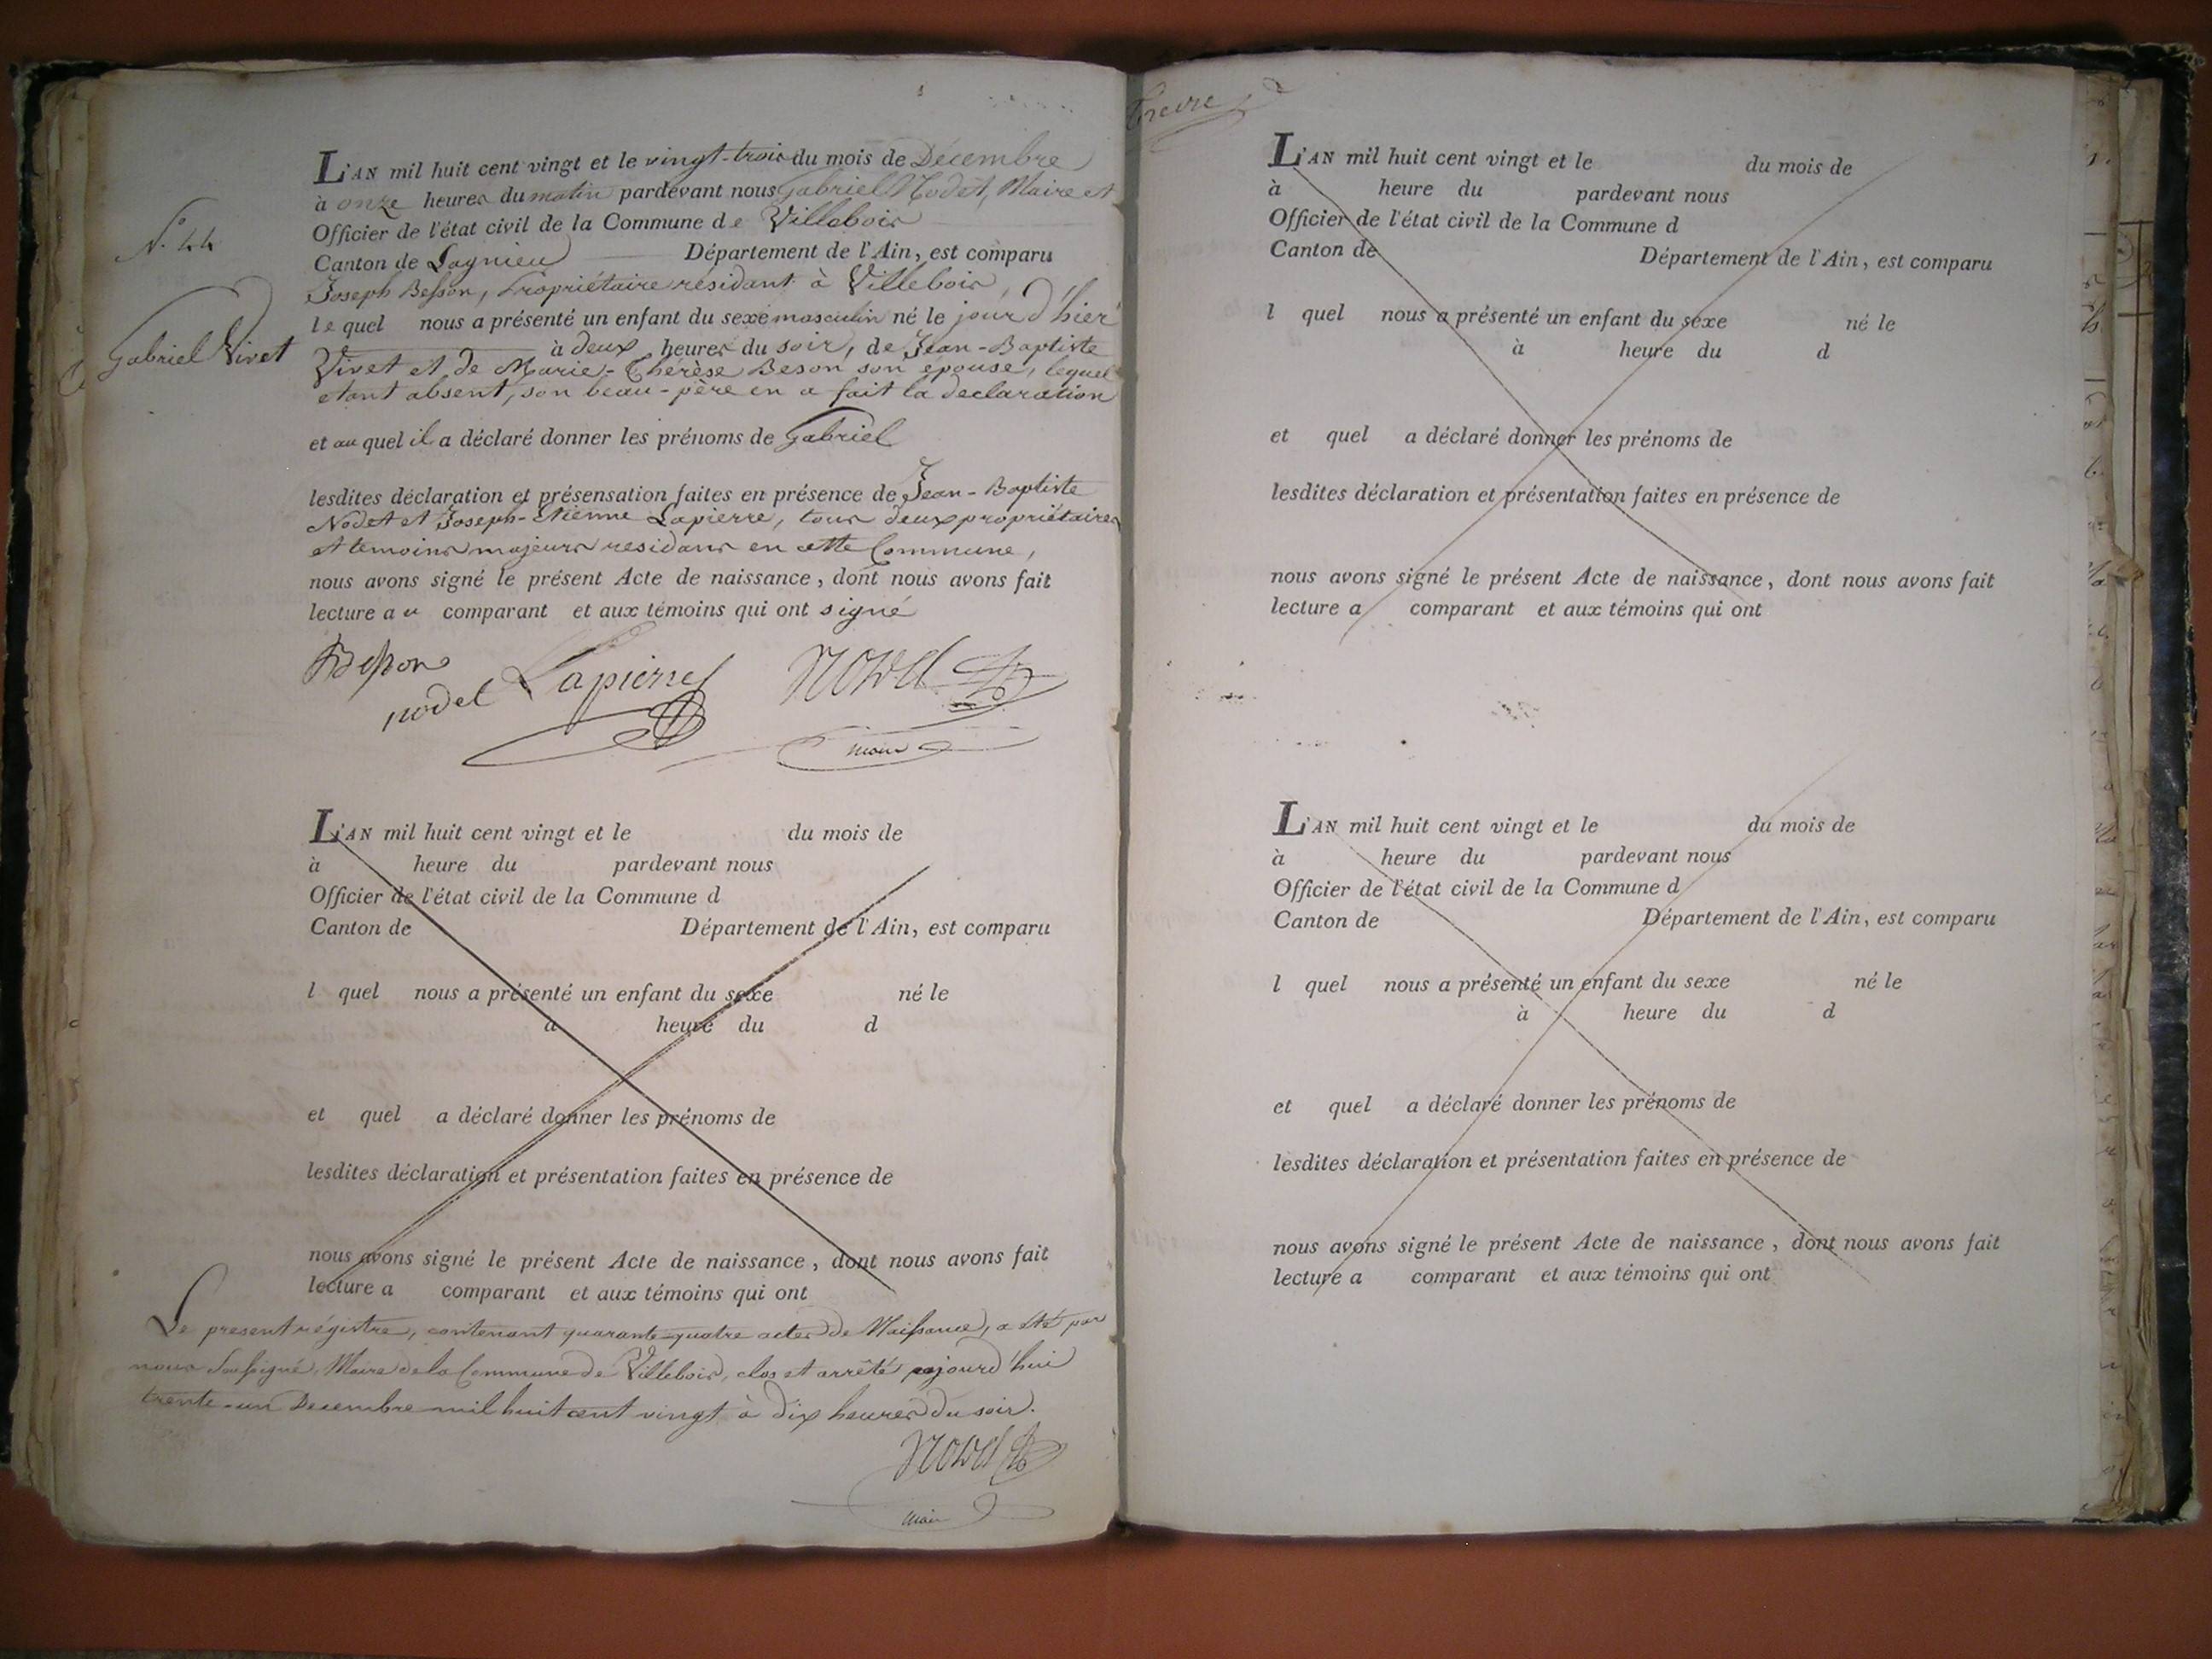 L'AN mil huit cent vingt et le vingt-trois du mois de Décembre
à onze heures du matin pardevant nous Gabriel Nodet, Maire et
Officier de l'état civil de la Commune de Villebois
Canton de Lagnieu Département de l'Ain, est comparu
Joseph Besson, Propriétaire résidant à Villebois,
le quel nous a présenté un enfant du sexe masculin né le jour d'hier
à deux heures du soir, de Jean-Baptiste
Vivet et de Marie-Thérèse Beson son épouse, lequel
etant absent, son beau-père en a fait la declaration
et au quel il a déclaré donner les prénoms de Gabriel
lesdites déclaration et présensation faites en présence de Jean-Baptiste
Nodet et Joseph-Etienne Lapierre, tous deux propriétaires
et temoins majeurs residans en cette Commune,
nous avons signé le présent Acte de naissance, dont nous avons fait
lecture au comparant et aux témoins qui ont signé
N.º 44
Gabriel Vivet
Besson
nodet Lapierre Nodet
maire
L'AN mil huit cent vingt et le du mois de
à heure du pardevant nous
Officier de l'état civil de la Commune d
Canton de Département de l'Ain, est comparu
l quel nous a présenté un enfant du sexe né le
à heure du d
et quel a déclaré donner les prénoms de
lesdites déclaration et présentation faites en présence de
nous avons signé le présent Acte de naissance, dont nous avons fait
lecture a comparant et aux témoins qui ont
Le present régistre, contenant quarante-quatre actes de Naissance, a été par
nous soussigné, Maire de la Commune de Villebois, clos et arrêté aujourd'hui
trente-un Decembre mil huit cent vingt à dix heures du soir.
Nodet
maire
L'AN mil huit cent vingt et le du mois de
à heure du pardevant nous
Officier de l'état civil de la Commune d
Canton de Département de l'Ain, est comparu
l quel nous a présenté un enfant du sexe né le
à heure du d
et quel a déclaré donner les prénoms de
lesdites déclaration et présentation faites en présence de
nous avons signé le présent Acte de naissance, dont nous avons fait
lecture a comparant et aux témoins qui ont
L'AN mil huit cent vingt et le du mois de
à heure du pardevant nous
Officier de l'état civil de la Commune d
Canton de Département de l'Ain, est comparu
l quel nous a présenté un enfant du sexe né le
à heure du d
et quel a déclaré donner les prénoms de
lesdites déclaration et présentation faites en présence de
nous avons signé le présent Acte de naissance, dont nous avons fait
lecture a comparant et aux témoins qui ont